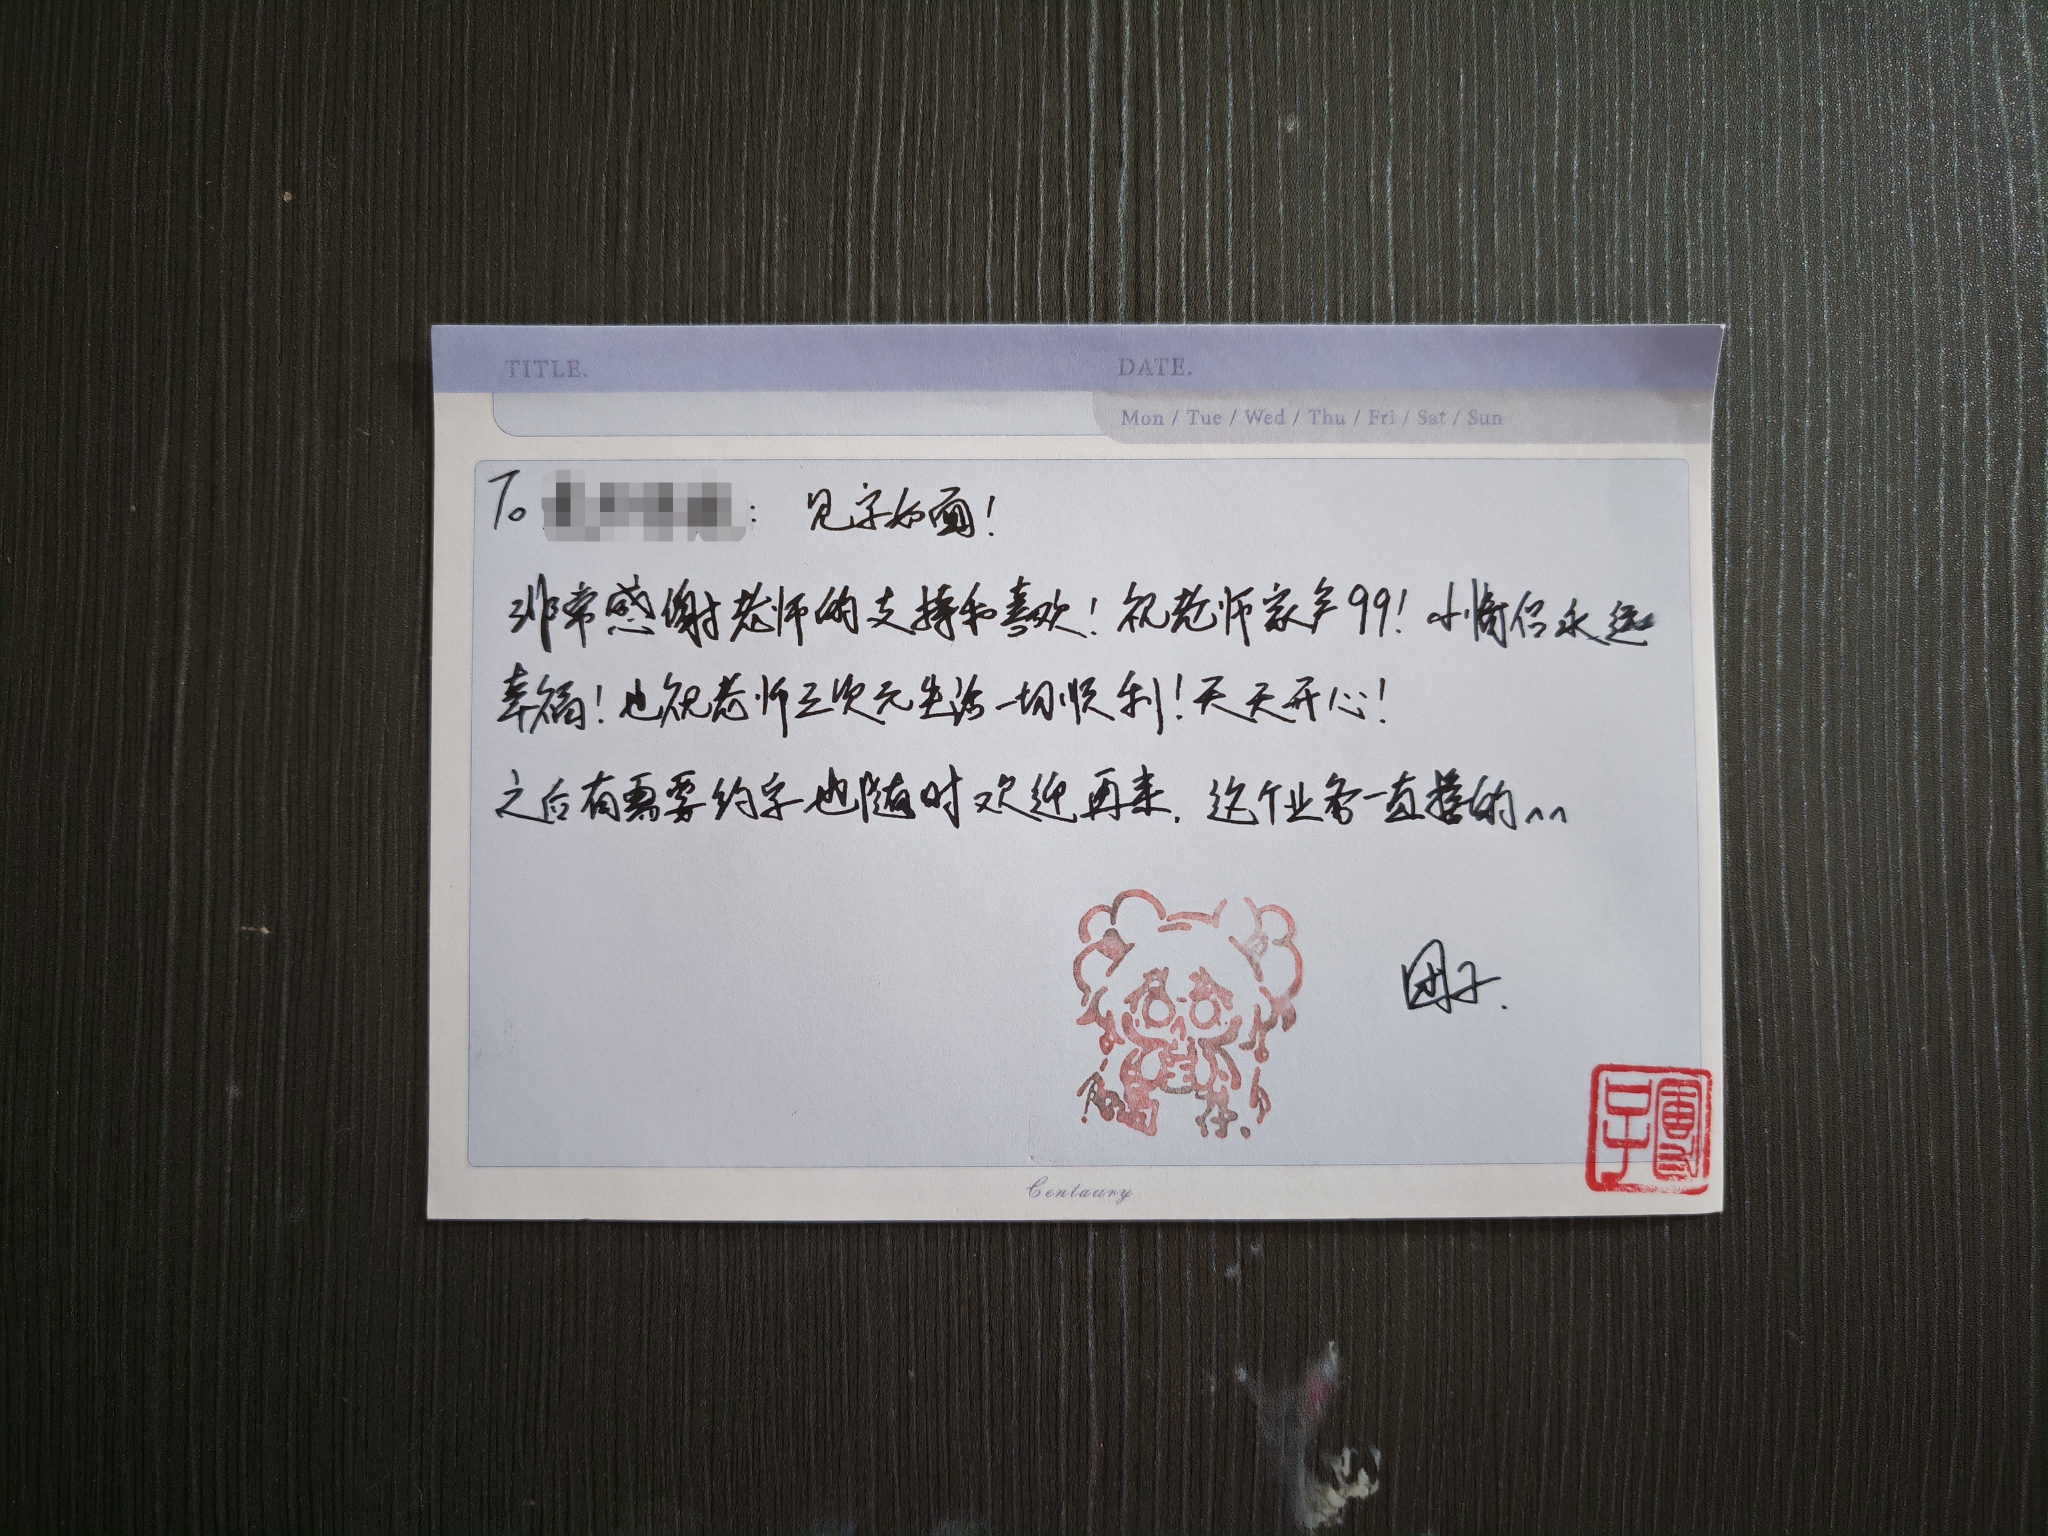 TITLE.
DATE.
Mon / Tue / Wed / Thu / Fri / Sat / Sun
To : 见字如面!
非常感谢老师的支持和喜欢!祝老师家产99!小情侣永远
幸福!也祝老师三次元生活一切顺利!天天开心!
之后有需要约字也随时欢迎再来.这个业务一直接的^^
团子.
團子
Centaury